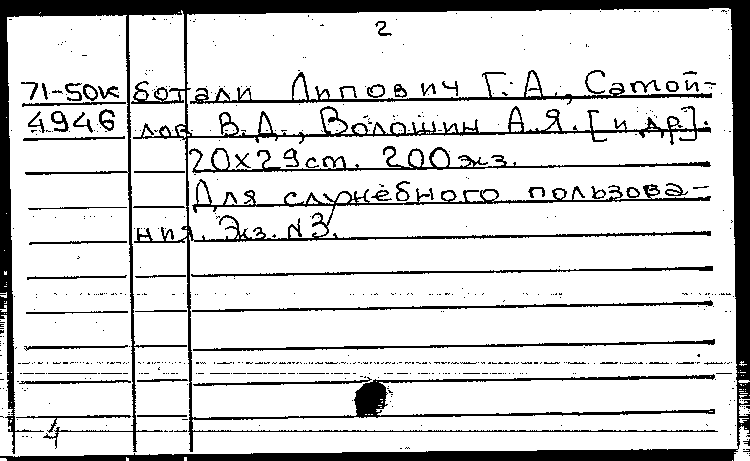 2
71-50к ботали Липович Г.А., Самой-
4946 лов В.Д., Волошин А.Я. [и др].
20х29ст. 200экз.
Для служебного пользова-
ния. Экз. №3.
4